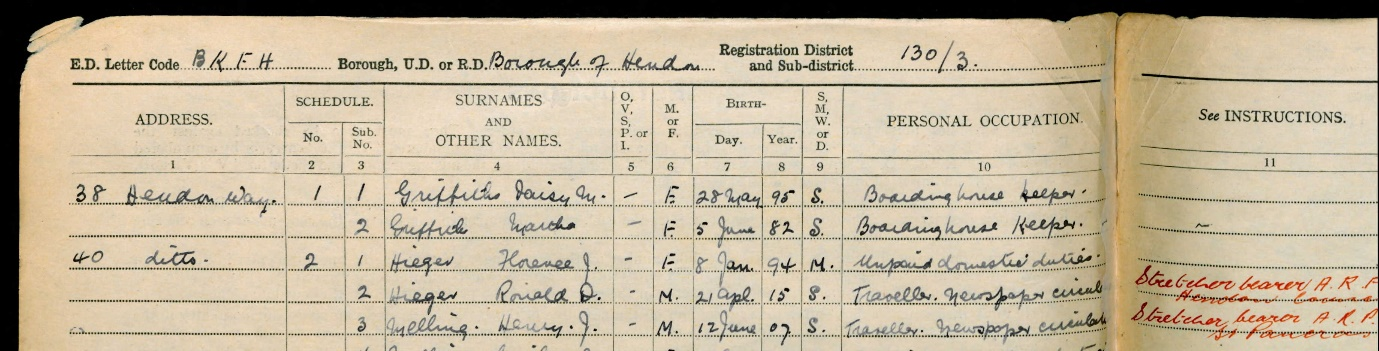 E.D. Letter Code B K F H Borough, U.D. or R.D. Borough of Hendon Registration District and Sub-district 130/3.
ADDRESS. SCHEDULE. No. Sub. No. SURNAMES AND OTHER NAMES. O, V, S, P. or I. M. or F. BIRTH- Day. Year. S, M, W. or D. PERSONAL OCCUPATION. See INSTRUCTIONS.
1 2 3 4 5 6 7 8 9 10 11
38 Hendon Way. 1 1 Griffiths Daisy M. - F. 28 May 95 S. Boardinghouse keeper.
2 Griffith Martha - F. 5 June 82 S. Boardinghouse Keeper. -
40 ditto. 2 1 Hieger Florence J. - F 8 Jan. 94 M. Unpaid domestic duties.
2 Hieger Ronald D. - M. 21 Apl. 15 S. Traveller. Newspaper Stretcher bearer A.R.P
Hendon
3 Melling. Henry. J. - M. 12 June 07 S. Traveller. Newspaper Stretcher bearer A.R.P.
St Pancras